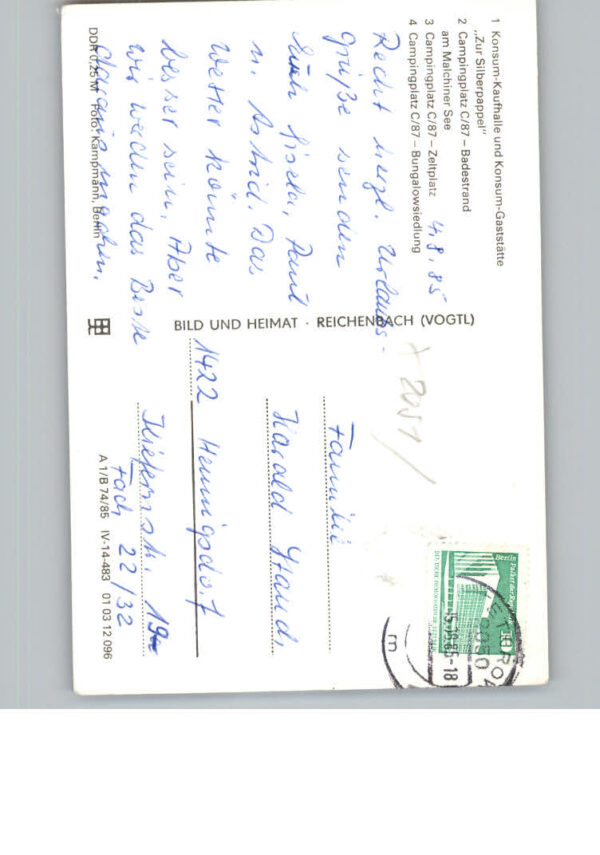 1 Konsum-Kaufhalle und Konsum-Gaststätte
„Zur Silberpappel"
2 Campingplatz C/87 – Badestrand
am Malchiner See
3 Campingplatz C/87 – Zeltplatz
4 Campingplatz C/87 – Bungalowsiedlung
4.8.85
Recht herzl. Urlaubs-
grüße senden
Euch Gisela,
u. Astrid. Das
Wetter könnte
besser sein, Aber
wir werden das Beste
daraus machen.
DDR 0,25 M Foto: Kampmann, Berlin
BILD UND HEIMAT · REICHENBACH (VOGTL)
Familie
Harald
1422 Hennigsdorf
Kiefernstr. 19
Fach 22/32
A 1/B 74/85 IV-14-483 01 03 12 096
Berlin
10